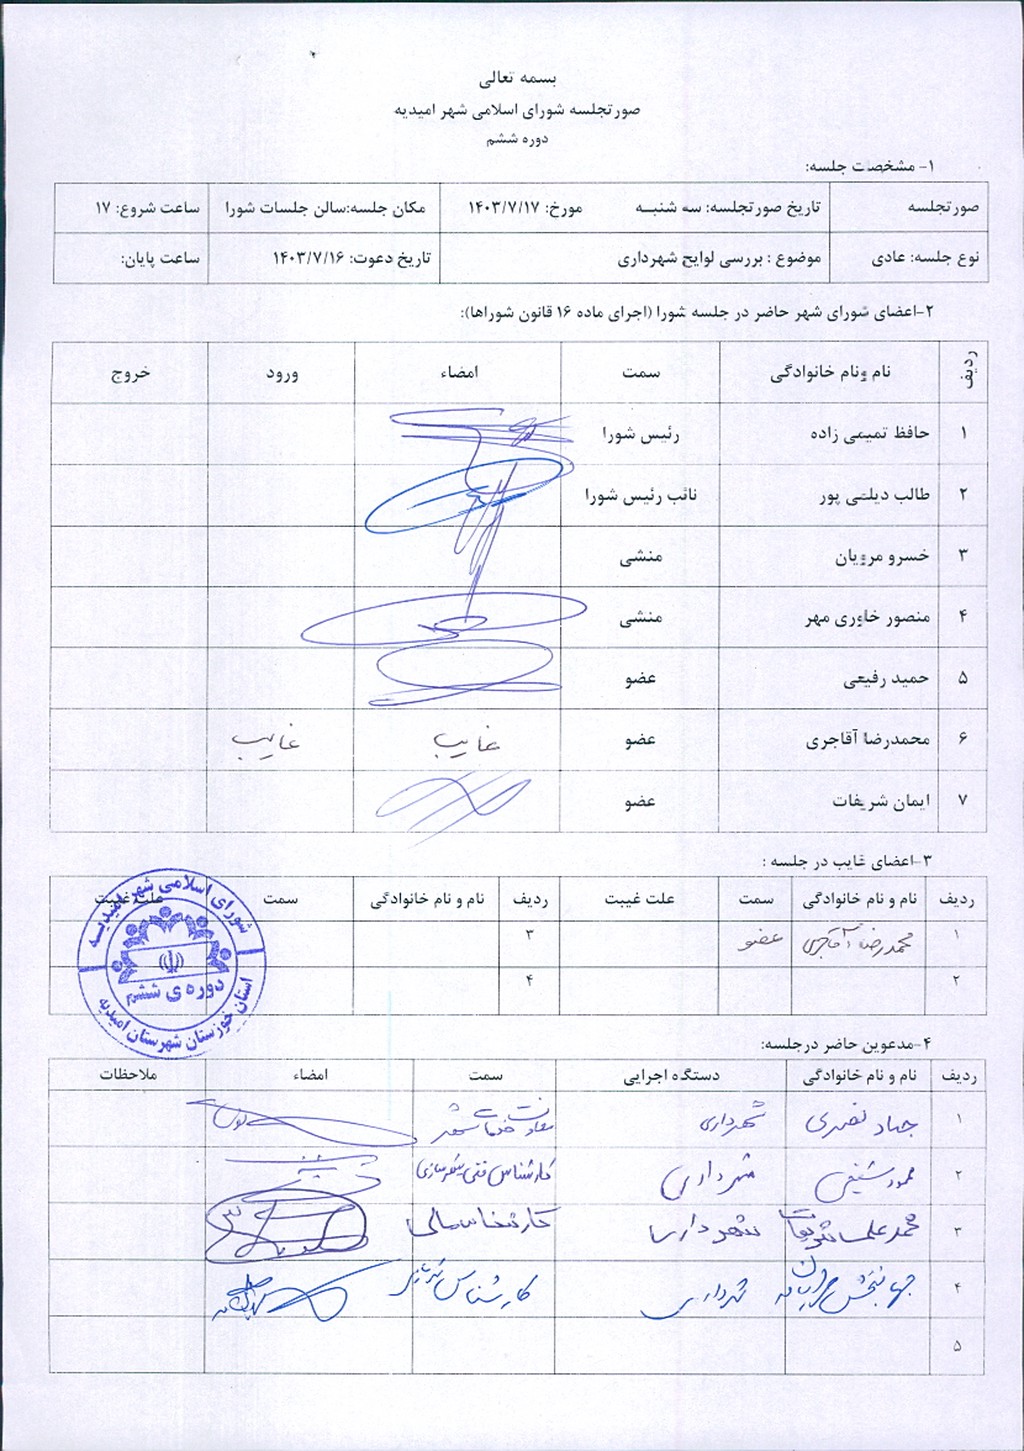 بسمه تعالی
صورتجلسه شورای اسلامی شهر امیدیه
دوره ششم
۱- مشخصات جلسه:
صورتجلسه تاریخ صورتجلسه: سه شنبه مورخ: ۱۴۰۳/۷/۱۷ مکان جلسه:سالن جلسات شورا ساعت شروع: ۱۷
نوع جلسه: عادی موضوع : بررسی لوایح شهرداری تاریخ دعوت: ۱۴۰۳/۷/۱۶ ساعت پایان:
۲-اعضای شورای شهر حاضر در جلسه شورا (اجرای ماده ۱۶ قانون شوراها):
ردیف نام ونام خانوادگی سمت امضاء ورود خروج
۱ حافظ تمیمی زاده رئیس شورا
۲ طالب دیلمی پور نائب رئیس شورا
۳ خسرو مرویان منشی
۴ منصور خاوری مهر منشی
۵ حمید رفیعی عضو
۶ محمدرضا آقاجری عضو غایب غایب
۷ ایمان شریفات عضو
۳-اعضای غایب در جلسه :
ردیف نام و نام خانوادگی سمت علت غیبت ردیف نام و نام خانوادگی سمت علت غیبت
۱ محمدرضا آقاجری عضو ۳
۲ ۴
شورای اسلامی شهر امیدیه
دوره ی ششم
استان خوزستان شهرستان امیدیه
۴-مدعوین حاضر درجلسه:
ردیف نام و نام خانوادگی دستگاه اجرایی سمت امضاء ملاحظات
۱ شهرداری معاونت خدمات شهر
۲ شهرداری کارشناس فنی شهرسازی
۳ محمدعلی شهرداری کارشناس مالی
۴ جهانبخش شهرداری کارشناس
۵